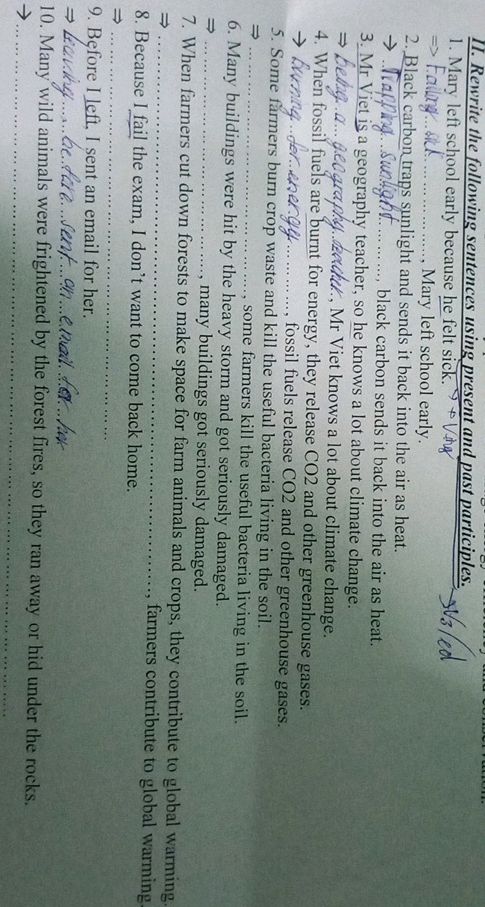 II. Rewrite the following sentences using present and past participles. → V3/ed
1. Mary left school early because he felt sick. → + Ving
⇒ Failing sick ............, Mary left school early.
2. Black carbon traps sunlight and sends it back into the air as heat.
→ Trapping sunlight ............, black carbon sends it back into the air as heat.
3. Mr Viet is a geography teacher, so he knows a lot about climate change.
⇒ Being a geography teacher, Mr Viet knows a lot about climate change.
4. When fossil fuels are burnt for energy, they release CO2 and other greenhouse gases.
→ Burning for energy ............, fossil fuels release CO2 and other greenhouse gases.
5. Some farmers burn crop waste and kill the useful bacteria living in the soil.
⇒ ............, some farmers kill the useful bacteria living in the soil.
6. Many buildings were hit by the heavy storm and got seriously damaged.
⇒ ............, many buildings got seriously damaged.
7. When farmers cut down forests to make space for farm animals and crops, they contribute to global warming.
⇒ ............, farmers contribute to global warming.
8. Because I fail the exam, I don't want to come back home.
⇒ ............
9. Before I left, I sent an email for her.
⇒ Leaving before sent an email for her
10. Many wild animals were frightened by the forest fires, so they ran away or hid under the rocks.
→ ............